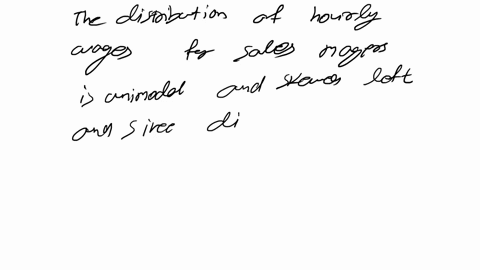 The distribution of hourly
wages for sales
is unimodal and skewes left
and since di